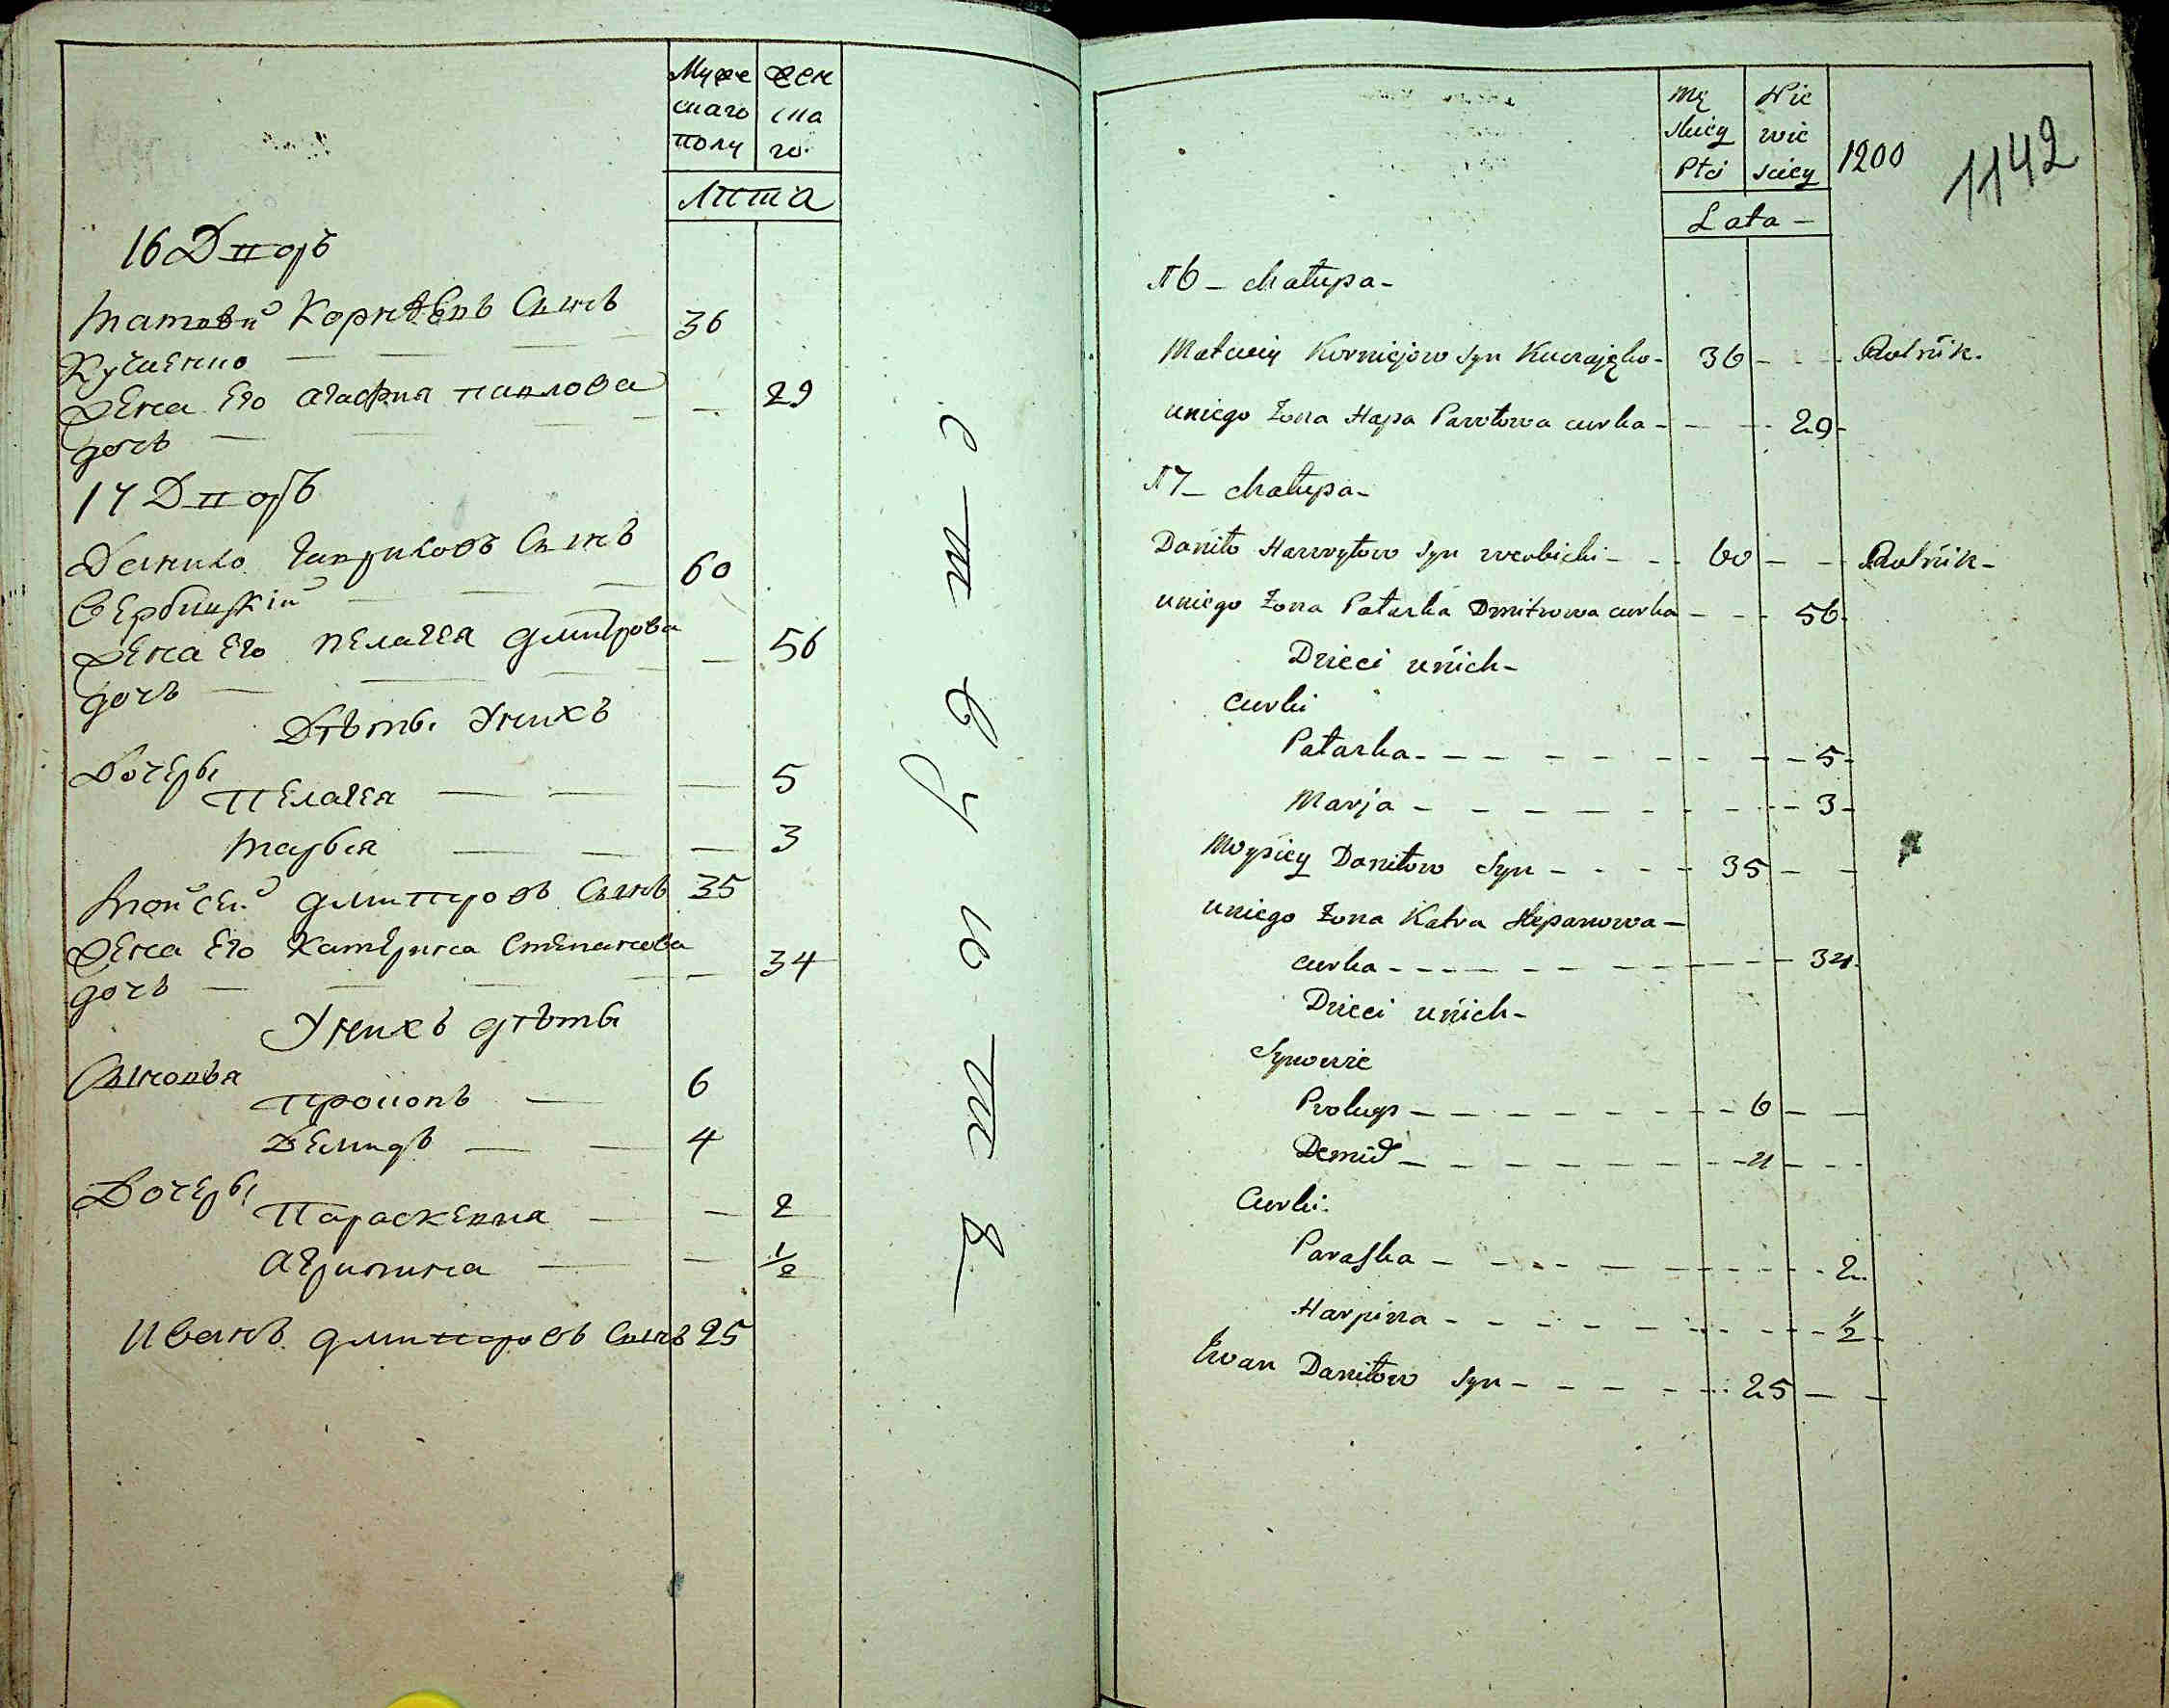 Мужескаго полу
Женскаго
Лѣта
16 Дворъ
Матвѣй Корнѣевъ Сынъ
36
Кучиенко
Жена Его Агафия Павлова
29
дочь
17 Дворъ
Данило Гавриловъ Сынъ
60
Вербицкій
Жена Его Пелагея Дмитрова
56
дочь
Дѣти Унихъ
Дочери
Пелагея 5
Марья 3
Мойсей Дмитровъ Сынъ 35
Жена Его Катерина Степанова
34
дочь
Унихъ дѣти
Сыновья
Прокопъ 6
Демидъ 4
Дочери
Параскевия 2
Агрипина 1/2
Иванъ Дмитровъ Сынъ 25
Mę
skiey
Płci
Nie
wie
sciey
1200
1142
Lata -
16 - chałupa -
Matwiy Korniejow Syn - 36 - - - Rolnik.
uniego Żona Hapa Pawłowa curka - - - 29 -
17 - chałupa -
Daniło Hawryłow Syn Werbicki - - - 60 - - Rolnik -
uniego Żona Pałaska Dmitrowa curka - - - 56 -
Dzieci unich -
Curki
Pałaska - - - - - - - - 5 -
Marja - - - - - - - - 3 -
Moysiey Daniłow Syn - - - - 35 - -
uniego Żona Katra Stepanowa -
curka - - - - - - - - 34
Dzieci unich -
Synowie
Prokup - - - - - - - 6 - -
Demid - - - - - - - 4 - - -
Curki.
Paraska - - - - - - - - 2.
Harpina - - - - - - - - 1/2 -
Iwan Daniłow Syn - - - - - 25 - -